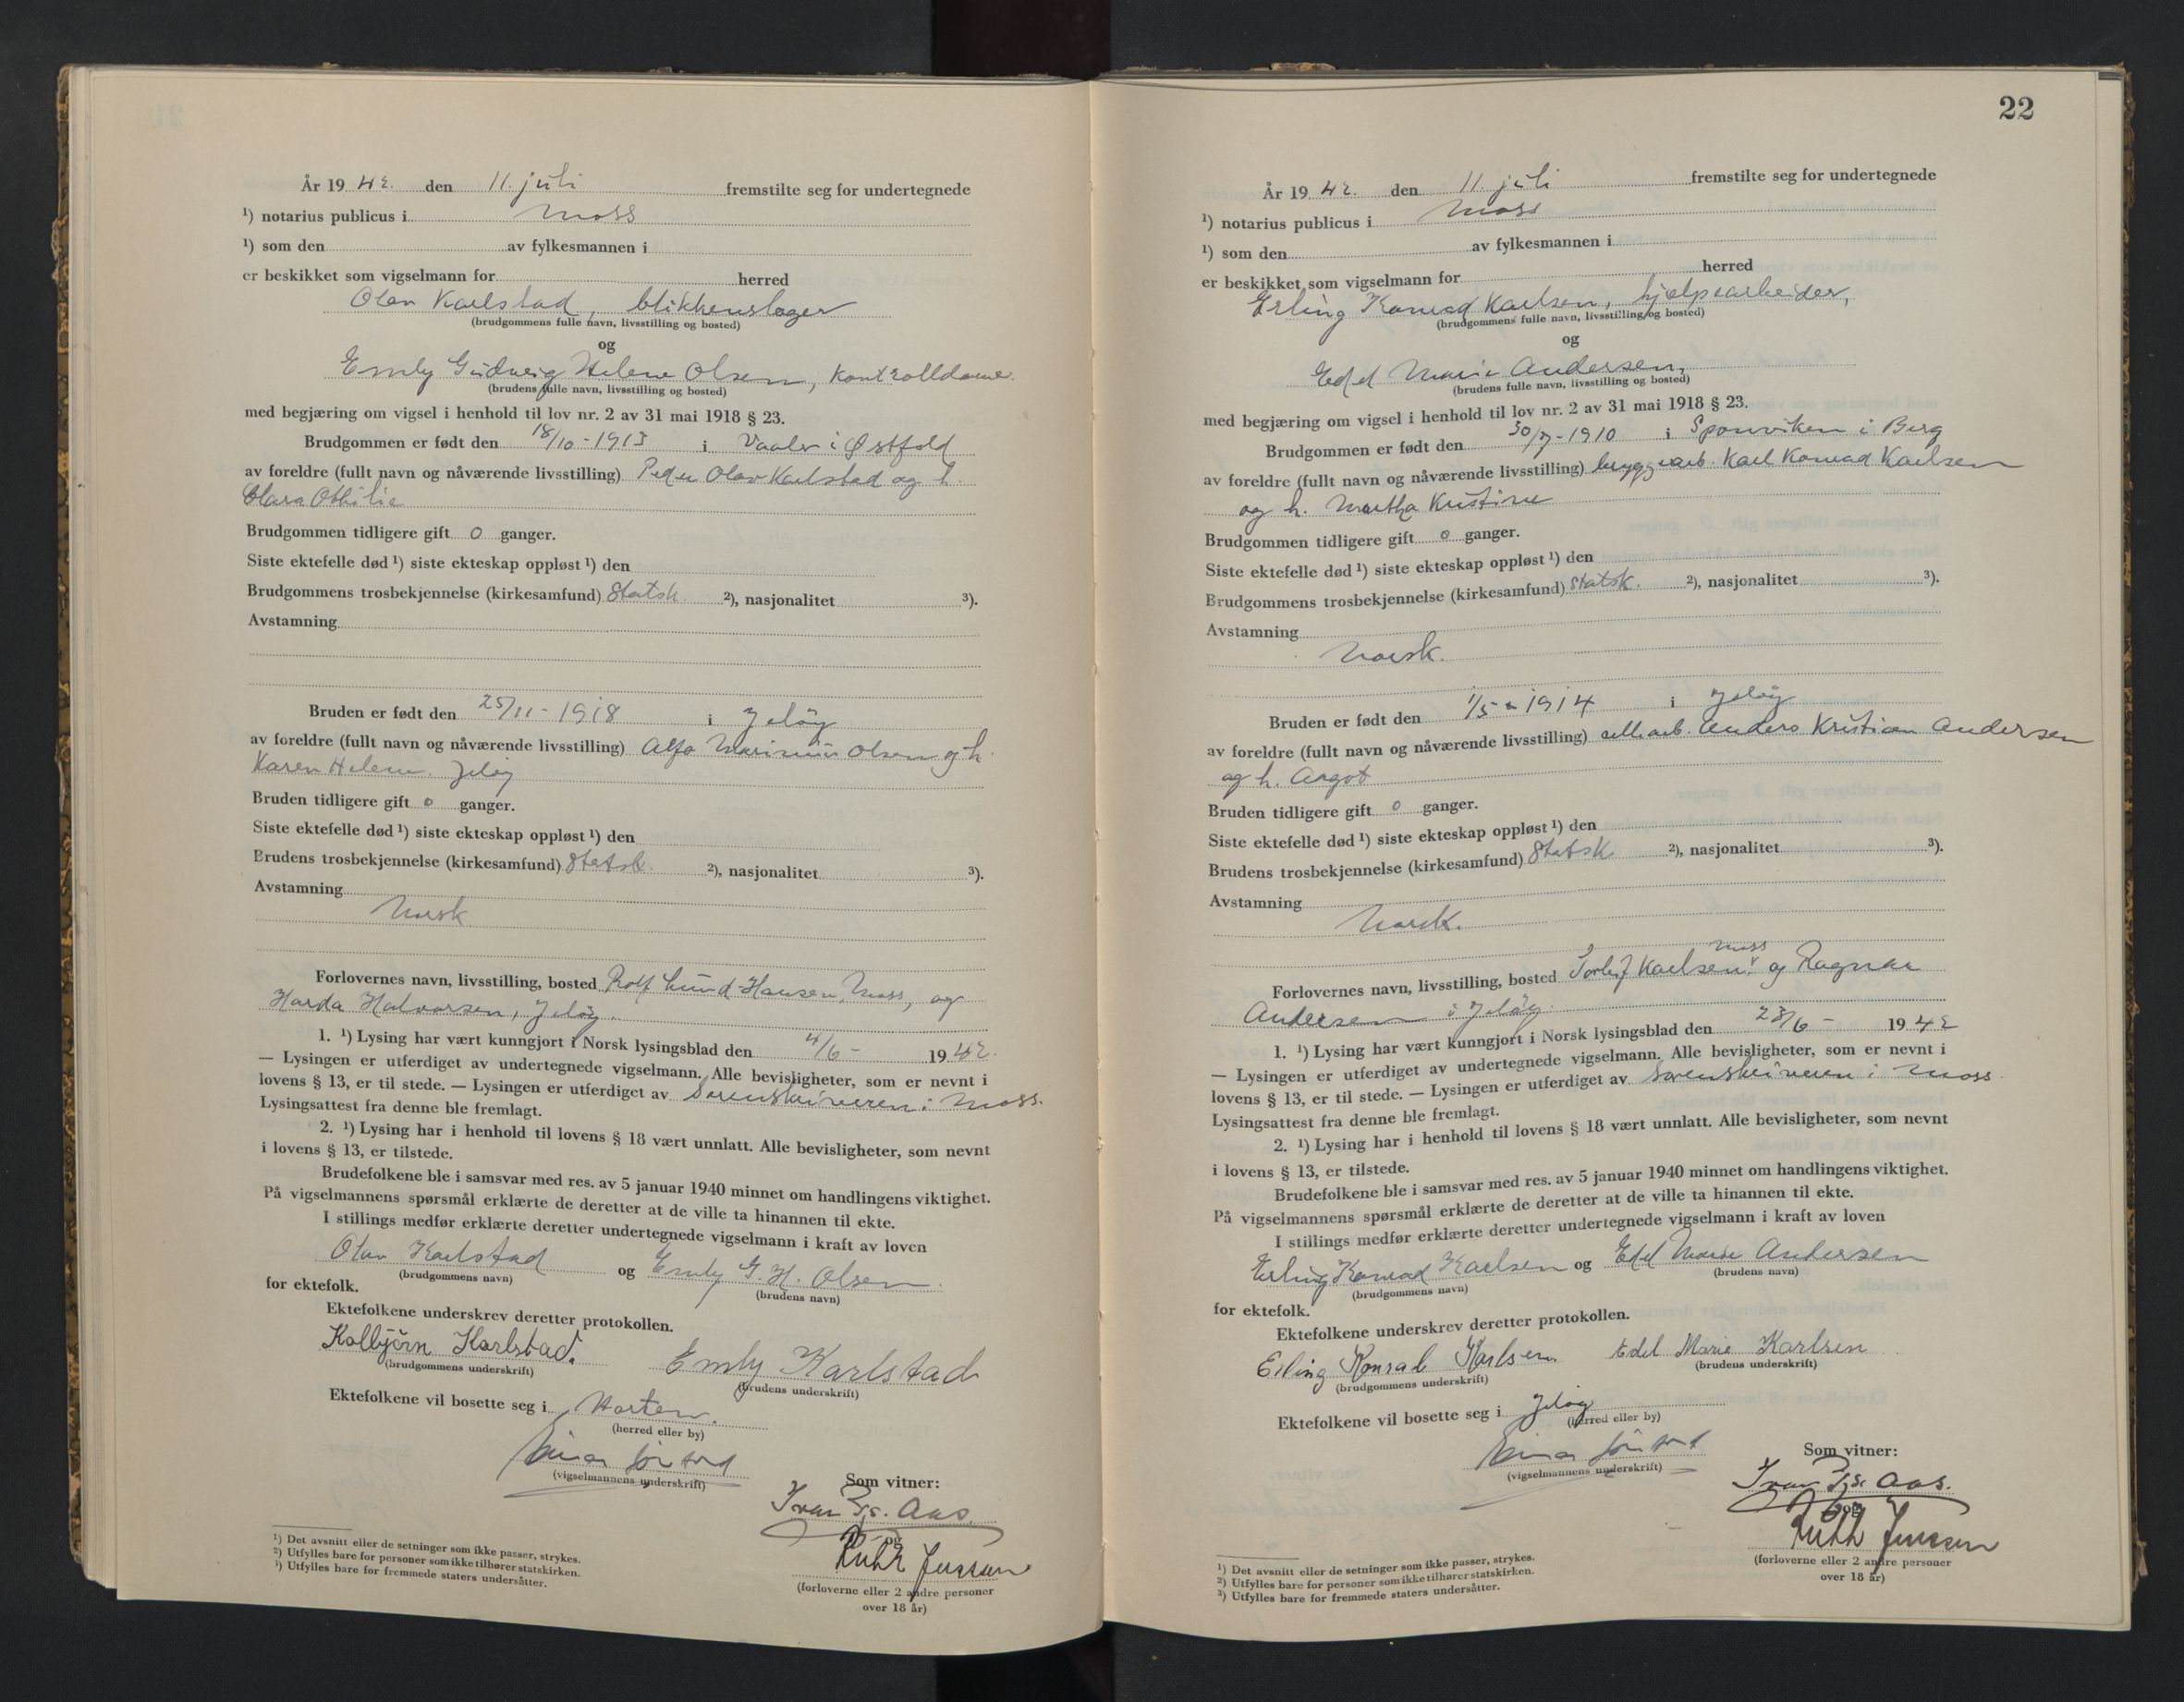 År 19 42. den 11. juli fremstilte seg for undertegnede
¹) notarius publicus i Moss
¹) som den av fylkesmannen i
er beskikket som vigselmann for herred
Olav Karlstad, blikkenslager
(brudgommens fulle navn, livsstilling og bosted)
og
Emly Gudveig Helene Olsen, kontrolldame.
(brudens fulle navn, livsstilling og bosted)
med begjæring om vigsel i henhold til lov nr. 2 av 31 mai 1918 § 23.
Brudgommen er født den 18/10-1913 i Vaaler i Østfold
av foreldre (fullt navn og nåværende livsstilling) Peder Olav Karlstad og h.
Clara Othilie
Brudgommen tidligere gift 0 ganger.
Siste ektefelle død ¹) siste ekteskap oppløst ¹) den
Brudgommens trosbekjennelse (kirkesamfund) Statsk. ²), nasjonalitet ³).
Avstamning
Bruden er født den 25/11-1918 i Jeløy
av foreldre (fullt navn og nåværende livsstilling) Alfa Marinius Olsen og h.
Karen Helene. Jeløy
Bruden tidligere gift 0 ganger.
Siste ektefelle død ¹) siste ekteskap oppløst ¹) den
Brudens trosbekjennelse (kirkesamfund) Statsk. ²), nasjonalitet ³).
Avstamning
Norsk
Forlovernes navn, livsstilling, bosted Rolf Lund-Hansen, Moss, og
Harda Halvorsen, Jeløy.
1. ¹) Lysing har vært kunngjort i Norsk lysingsblad den 4/6- 19 42.
— Lysingen er utferdiget av undertegnede vigselmann. Alle bevisligheter, som er nevnt i
lovens § 13, er til stede. — Lysingen er utferdiget av Sorenskriveren i Moss.
Lysingsattest fra denne ble fremlagt.
2. ¹) Lysing har i henhold til lovens § 18 vært unnlatt. Alle bevisligheter, som nevnt
i lovens § 13, er tilstede.
Brudefolkene ble i samsvar med res. av 5 januar 1940 minnet om handlingens viktighet.
På vigselmannens spørsmål erklærte de deretter at de ville ta hinannen til ekte.
I stillings medfør erklærte deretter undertegnede vigselmann i kraft av loven
Olav Karlstad og Emly G. H. Olsen
(brudgommens navn) (brudens navn)
for ektefolk.
Ektefolkene underskrev deretter protokollen.
Kolbjörn Karlstad. Emly Karlstad
(brudgommens underskrift) (brudens underskrift)
Ektefolkene vil bosette seg i Horten.
(herred eller by)
(vigselmannens underskrift)
Som vitner:
Aas.
og
Ruth Jenssen
(forloverne eller 2 andre personer
over 18 år)
¹) Det avsnitt eller de setninger som ikke passer, strykes.
²) Utfylles bare for personer som ikke tilhører statskirken.
³) Utfylles bare for fremmede staters undersåtter.
22
År 19 42. den 11. juli fremstilte seg for undertegnede
¹) notarius publicus i Moss
¹) som den av fylkesmannen i
er beskikket som vigselmann for herred
Erling Konrad Karlsen, hjelpearbeider,
(brudgommens fulle navn, livsstilling og bosted)
og
Edel Marie Andersen,
(brudens fulle navn, livsstilling og bosted)
med begjæring om vigsel i henhold til lov nr. 2 av 31 mai 1918 § 23.
Brudgommen er født den 30/7-1910 i Sponviken i Berg
av foreldre (fullt navn og nåværende livsstilling) bryggearb. Karl Konrad Karlsen
og h. Martha Kristine
Brudgommen tidligere gift 0 ganger.
Siste ektefelle død ¹) siste ekteskap oppløst ¹) den
Brudgommens trosbekjennelse (kirkesamfund) Statsk. ²), nasjonalitet ³).
Avstamning
Norsk.
Bruden er født den 1/5-1914 i Jeløy
av foreldre (fullt navn og nåværende livsstilling) cellearb. Anders Kristian Andersen
og h. Aagot
Bruden tidligere gift 0 ganger.
Siste ektefelle død ¹) siste ekteskap oppløst ¹) den
Brudens trosbekjennelse (kirkesamfund) Statsk ²), nasjonalitet ³).
Avstamning
Norsk.
Forlovernes navn, livsstilling, bosted Torleif Karlsen, Moss og Ragnar
Andersen i Jeløy
1. ¹) Lysing har vært kunngjort i Norsk lysingsblad den 23/6- 19 42
— Lysingen er utferdiget av undertegnede vigselmann. Alle bevisligheter, som er nevnt i
lovens § 13, er til stede. — Lysingen er utferdiget av Sorenskriveren i Moss.
Lysingsattest fra denne ble fremlagt.
2. ¹) Lysing har i henhold til lovens § 18 vært unnlatt. Alle bevisligheter, som nevnt
i lovens § 13, er tilstede.
Brudefolkene ble i samsvar med res. av 5 januar 1940 minnet om handlingens viktighet.
På vigselmannens spørsmål erklærte de deretter at de ville ta hinannen til ekte.
I stillings medfør erklærte deretter undertegnede vigselmann i kraft av loven
Erling Konrad Karlsen og Edel Marie Andersen
(brudgommens navn) (brudens navn)
for ektefolk.
Ektefolkene underskrev deretter protokollen.
Erling Konrad Karlsen Edel Marie Karlsen
(brudgommens underskrift) (brudens underskrift)
Ektefolkene vil bosette seg i Jeløy
(herred eller by)
(vigselmannens underskrift)
Som vitner:
Aas.
og
Ruth Jenssen
(forloverne eller 2 andre personer
over 18 år)
¹) Det avsnitt eller de setninger som ikke passer, strykes.
²) Utfylles bare for personer som ikke tilhører statskirken.
³) Utfylles bare for fremmede staters undersåtter.